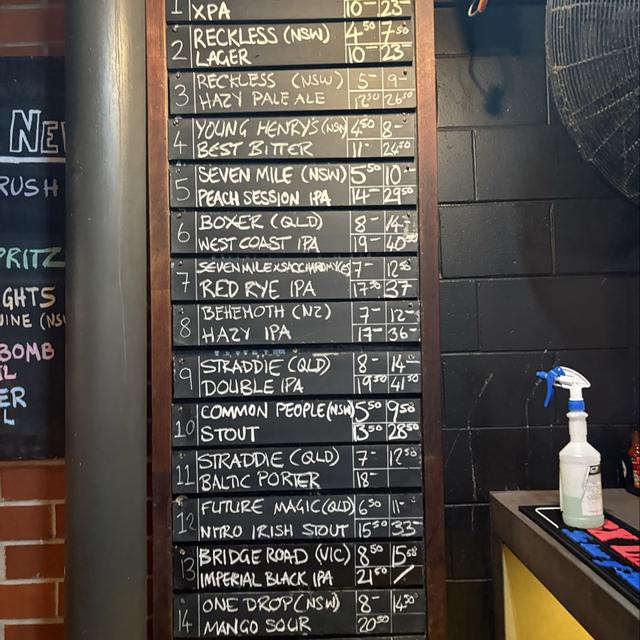 1 XPA 10- 23-
2 RECKLESS (NSW) 4.50 7.50
LAGER 10- 23-
3 RECKLESS (NSW) 5- 9-
HAZY PALE ALE 12.50 26.50
4 YOUNG HENRY'S (NSW) 4.50 8-
BEST BITTER 11- 24.50
5 SEVEN MILE (NSW) 5.50 10-
PEACH SESSION IPA 14- 29.50
6 BOXER (QLD) 8- 14-
WEST COAST IPA 19- 40.50
7 SEVEN MILE X SACCHAROMYCES 7- 12.50
RED RYE IPA 17.50 37
8 BEHEMOTH (NZ) 7- 12-
HAZY IPA 17- 36-
9 STRADDIE (QLD) 8- 14-
DOUBLE IPA 19.50 41.50
10 COMMON PEOPLE (NSW) 5.50 9.50
STOUT 13.50 28.50
11 STRADDIE (QLD) 7- 12.50
BALTIC PORTER 18-
12 FUTURE MAGIC (QLD) 6.50 11-
NITRO IRISH STOUT 15.50 33-
13 BRIDGE ROAD (VIC) 8.50 15.50
IMPERIAL BLACK IPA 21.50 /
14 ONE DROP (NSW) 8- 14.50
MANGO SOUR 20.50
NE
RUSH
PRITZ
GHTS
BOMB
ER
L